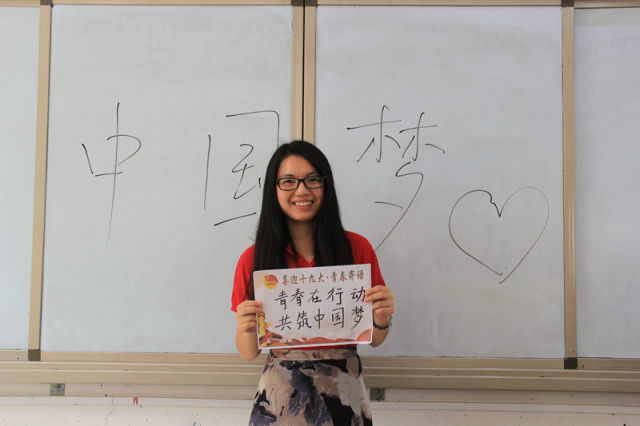 中国梦
喜迎十九大·青春寄语
青春在行动
共筑中国梦